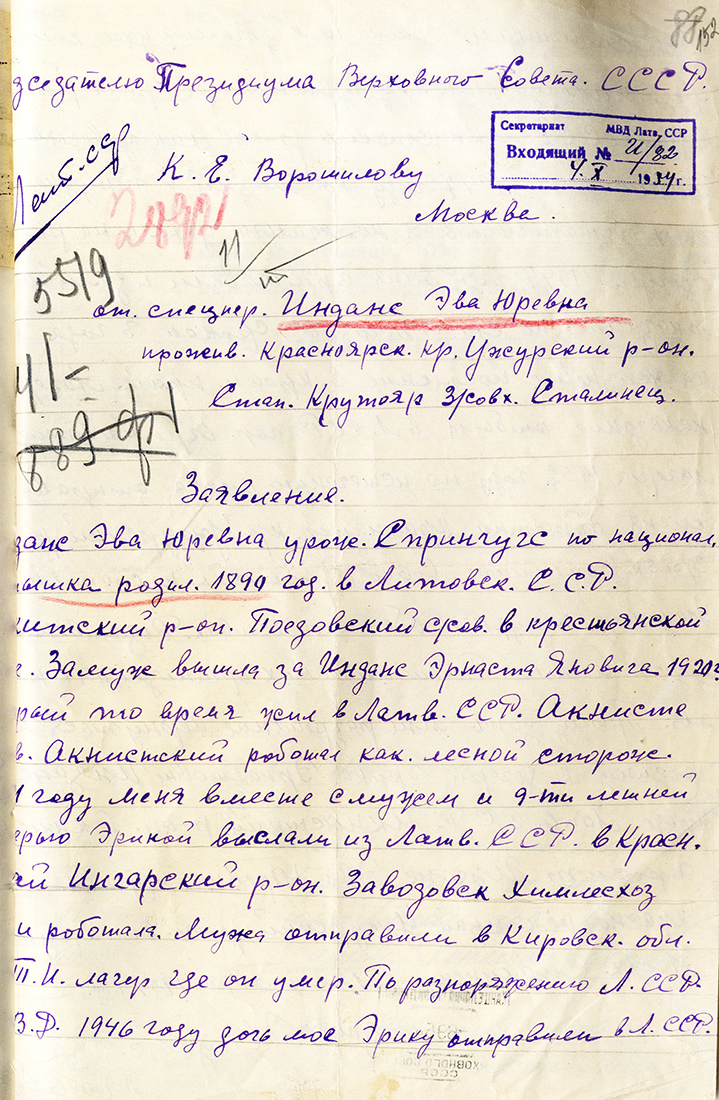 88
152
дседателю Президиума Верховного Совета. СССР.
Секретариат МВД Латв. ССР
Входящий № И/82
4. X 1954 г.
Латв. ССР
К. Е. Ворошилову
Москва.
5519
от. спецпер. Инданс Эва Юревна
прожив. Красноярск. кр. Ужурский р-он.
Стан. Крутояр З/совх. Сталинец.
41-
889 ф
Заявление.
данс Эва Юревна урож. Спринчугс по национал.
ышка родил. 1890 год. в Литовск. С.С.Р.
китский р-он. Поедовский с/сов. в крестьянской
е. Замуж вышла за Инданс Эрнаста Яновига 1920г
рый то время жил в Латв. ССР. Акнисте
в. Акнистский роботал как. лесной сторож.
1 году меня вместе с мужем и 9-ти летней
ерью Эрикой выслали из Латв. ССР. в Красн.
ей Ингарский р-он. Заводовск Химлесхоз
и роботала. Мужа отправили в Кировск. обл.
Т.И. лагер где он умер. По разпоряжению Л. ССР.
З.Д. 1946 году доч мое Эрику отправили в Л. ССР.